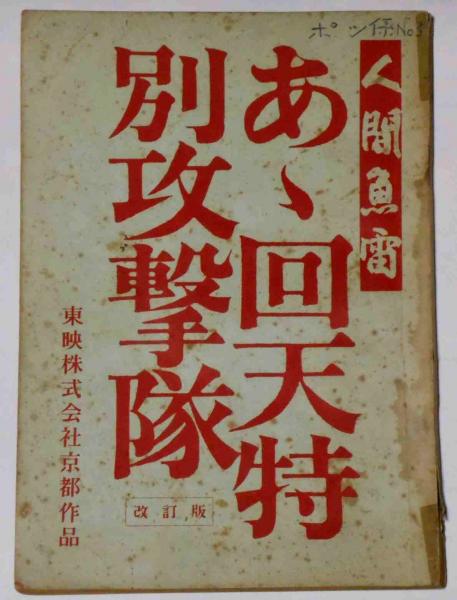 ポツ係No3
人間魚雷
あゝ回天特
別攻撃隊
改訂版
東映株式会社京都作品